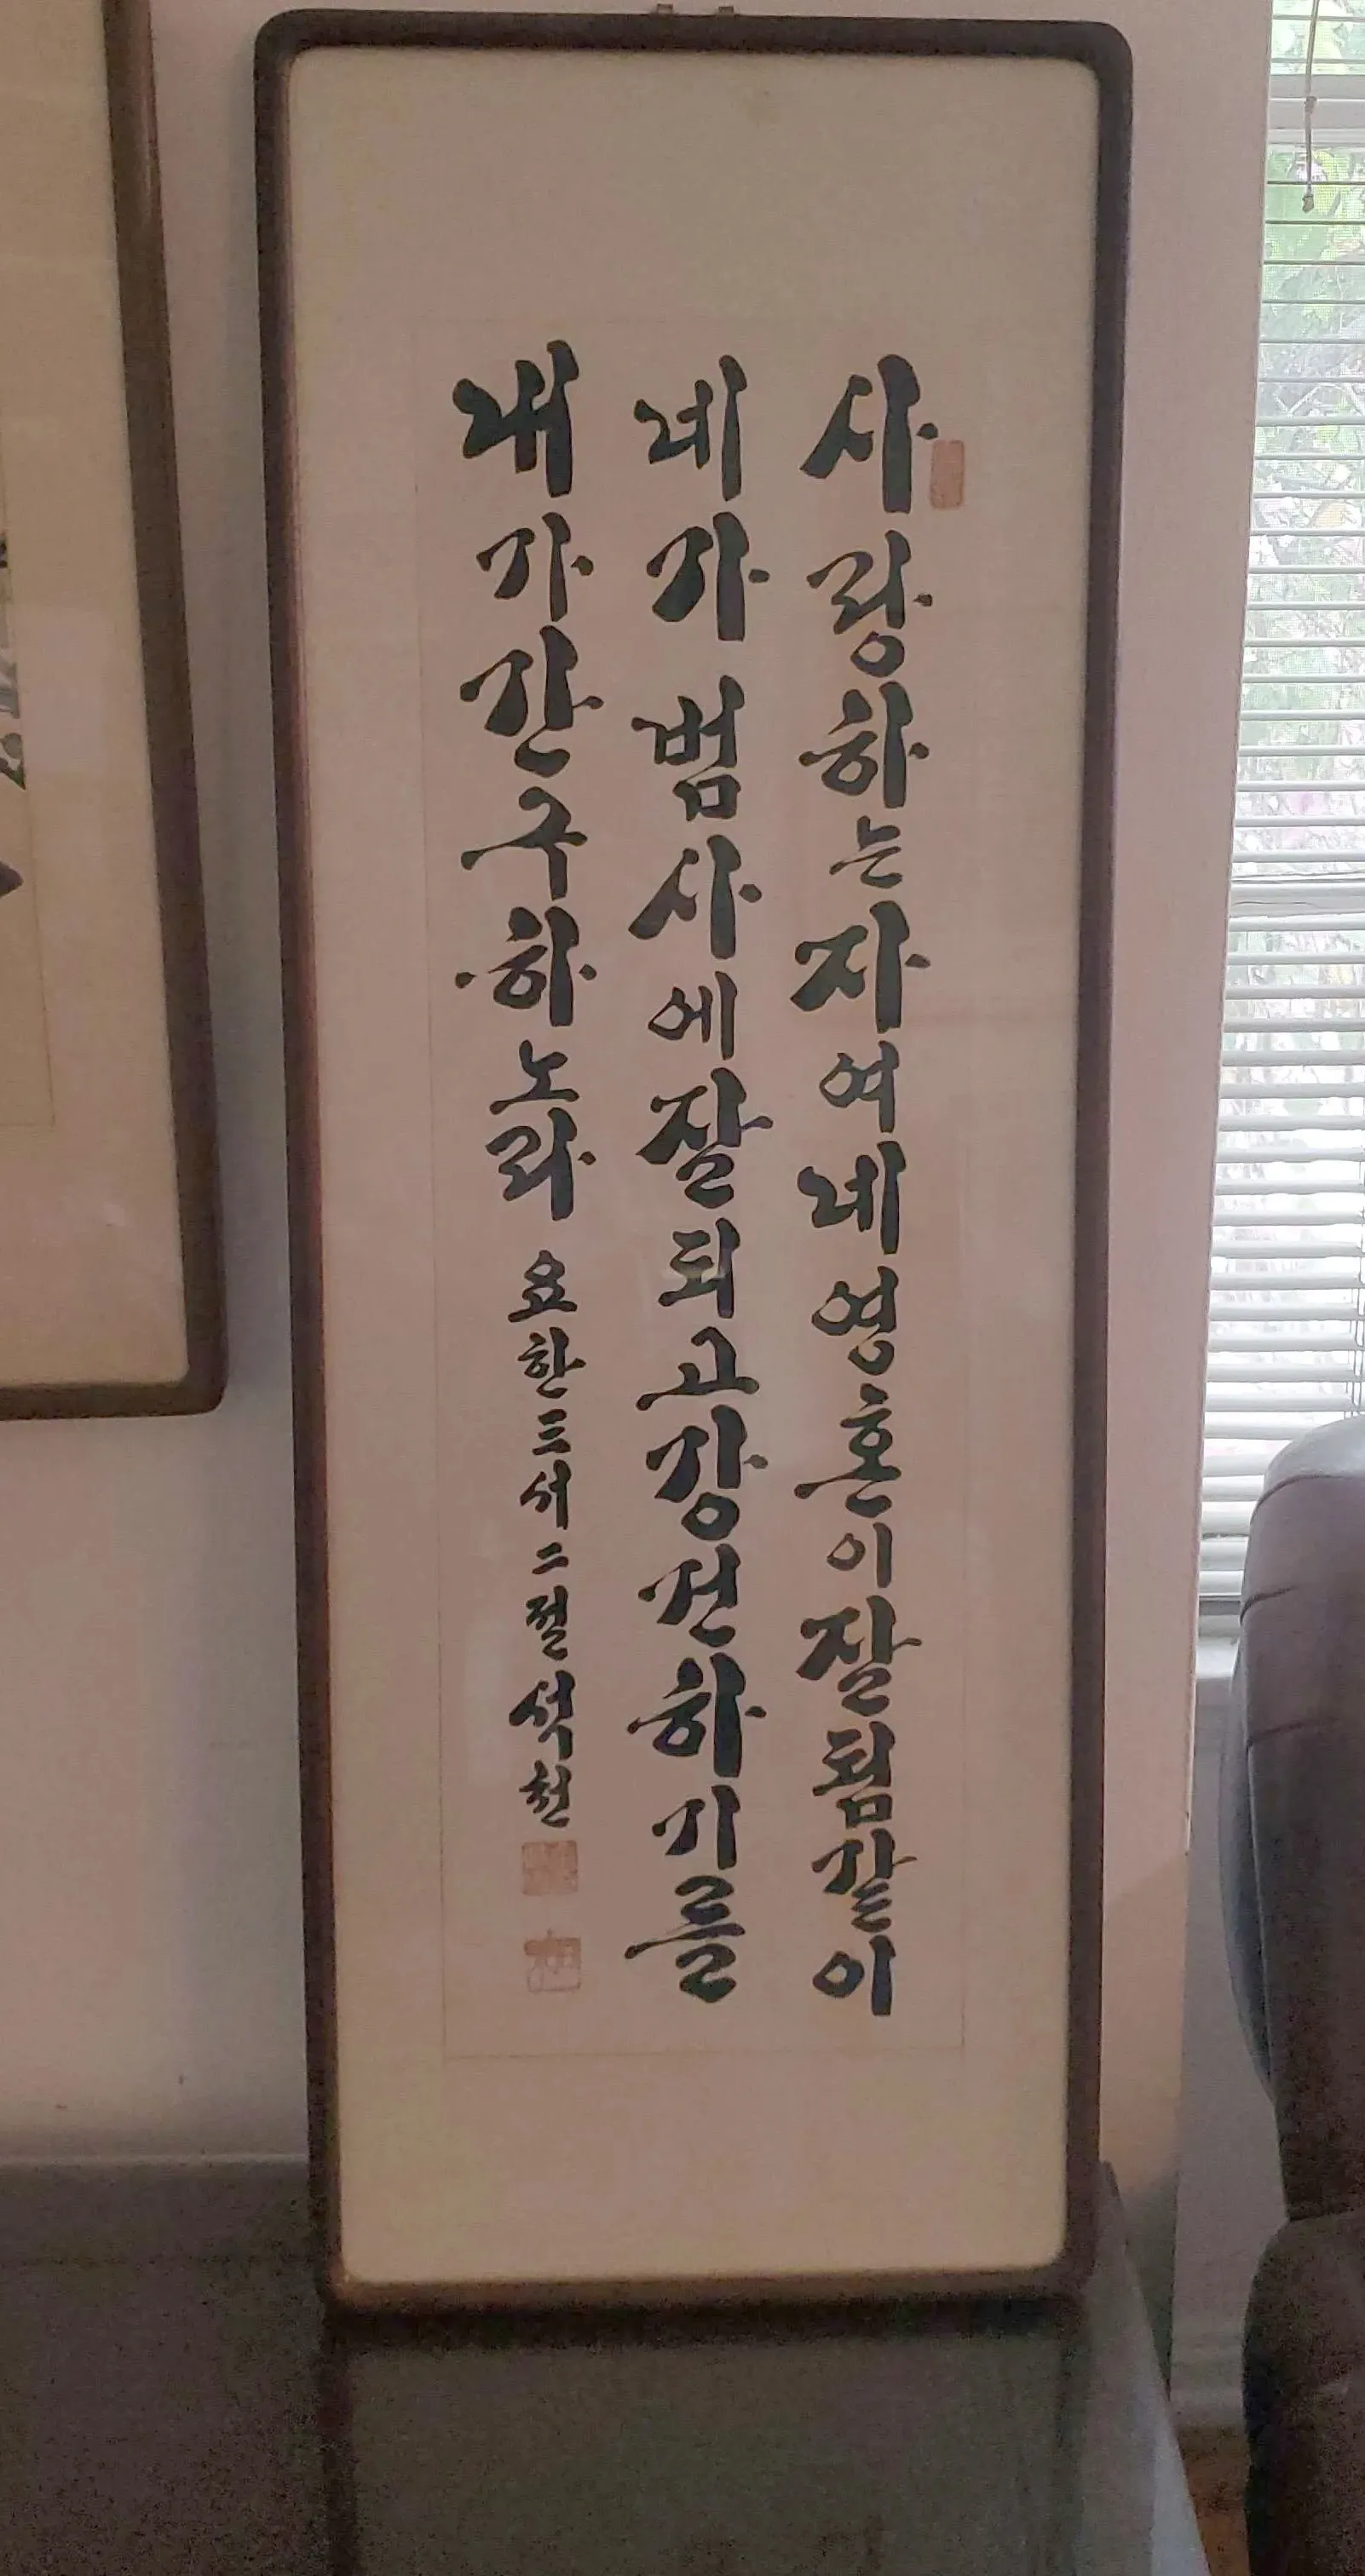 사랑하는자여네영혼이잘됨같이
네가범사에잘되고강건하기를
내가간구하노라 요한三서二절 석천